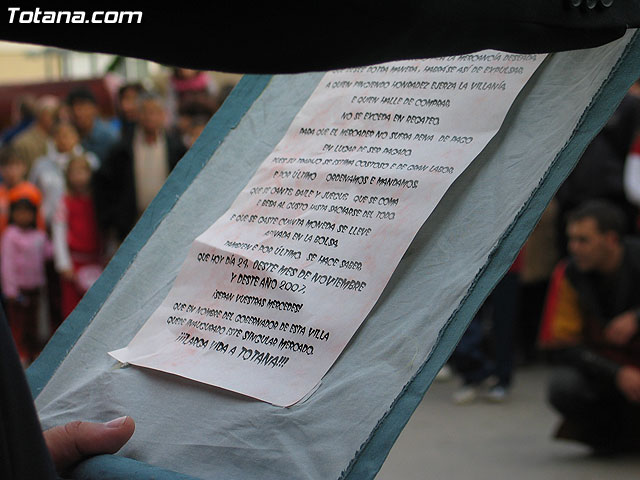 Totana.com
LA MERCANCÍA DESEADA,
POTRA MANERA, HABRASE ASÍ DE EXPULSAR
A QUIEN FINGIENDO HONRADEZ EJERZA LA VILLANÍA.
E QUIEN HALLE DE COMPRAR,
NO SE EXCEDA EN REGATEO,
PARA QUE EL MERCADER NO SUFRA PENA DE PAGO
EN LUGAR DE SER PAGADO,
PUES SU TRABAJO SE ESTIMA COSTOSO E DE GRAN LABOR.
E POR ÚLTIMO ORDENAMOS E MANDAMOS,
QUE SE CANTE, BAILE Y JUEGUE, QUE SE COMA
E BEBA AL GUSTO HASTA SACIARSE DEL TODO
E QUE SE GASTE CUANTA MONEDA SE LLEVE
EN LA BOLSA.
TAMBIEN E POR ÚLTIMO SE HACE SABER,
QUE HOY DÍA 24, DESTE MES DE NOVIEMBRE
Y DESTE AÑO 2007,
¡SEPAN VUESTRAS MERCEDES!
QUE EN NOMBRE DEL GOBERNADOR DE ESTA VILLA
QUEDE INAUGURADO ESTE SINGULAR MERCADO.
¡¡¡LARGA VIDA A TOTANA!!!